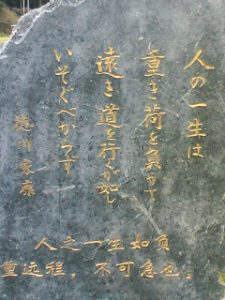 人の一生は
重き荷を負ひて
遠き道を行くが如し
いそぐべからず
徳川家康
人之一生如负
重远程，不可急也。